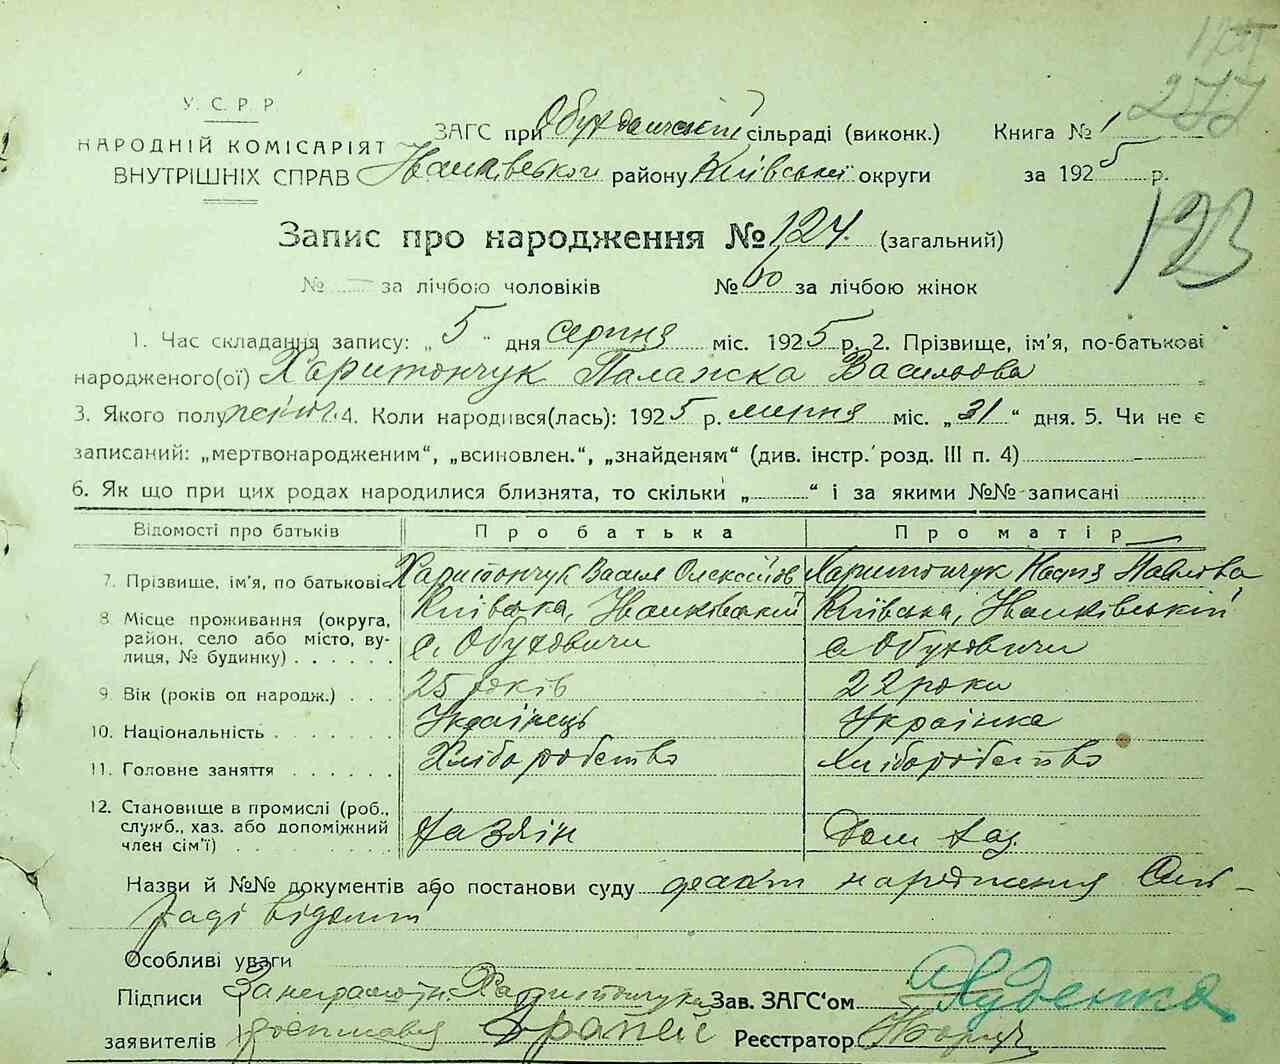 277
У. С. Р. Р
НАРОДНІЙ КОМІСАРІЯТ
ВНУТРІШНІХ СПРАВ
ЗАГС при сільраді (виконк.)
Іванківського району Київської округи
Книга № 1
за 1925 р.
123
Запис про народження № 124. (загальний)
№ — за лічбою чоловіків № 60 за лічбою жінок
1. Час складання запису: „ 5 “ дня серпня міс. 1925 р. 2. Прізвище, ім'я, по-батькові
народженого(ої) Харитончук Палажка Василова
3. Якого полу жіноч. 4. Коли народився(лась): 1925 р. липня міс. „ 31 “ дня. 5. Чи не є
записаний: „мертвонародженим“, „всиновлен.“, „знайденям“ (див. інстр. розд. III п. 4)
6. Як що при цих родах народилися близнята, то скільки „ “ і за якими №№ записані
Відомості про батьків Про батька Про матір
7. Прізвище, ім'я, по батькові Харитончук Василь Олексійов Харитончук Настя Павлова
8. Місце проживання (округа, район, село або місто, вулиця, № будинку) Київська, Іванківський Київська, Іванківській
с. Обуховичи с. Обуховичи
9. Вік (років од народж.) 25 років 22 роки
10. Національність Українець Українка
11. Головне заняття Хліборобство Хліборобство
12. Становище в промислі (роб., служб., хаз. або допоміжний член сім'ї) Хазяін Дом хаз.
Назви й №№ документів або постанови суду факт народження Сіль-
раді відомий
Особливі уваги
Підписи За неграмотн. Харитончука Зав. ЗАГС'ом
заявителів Реєстратор